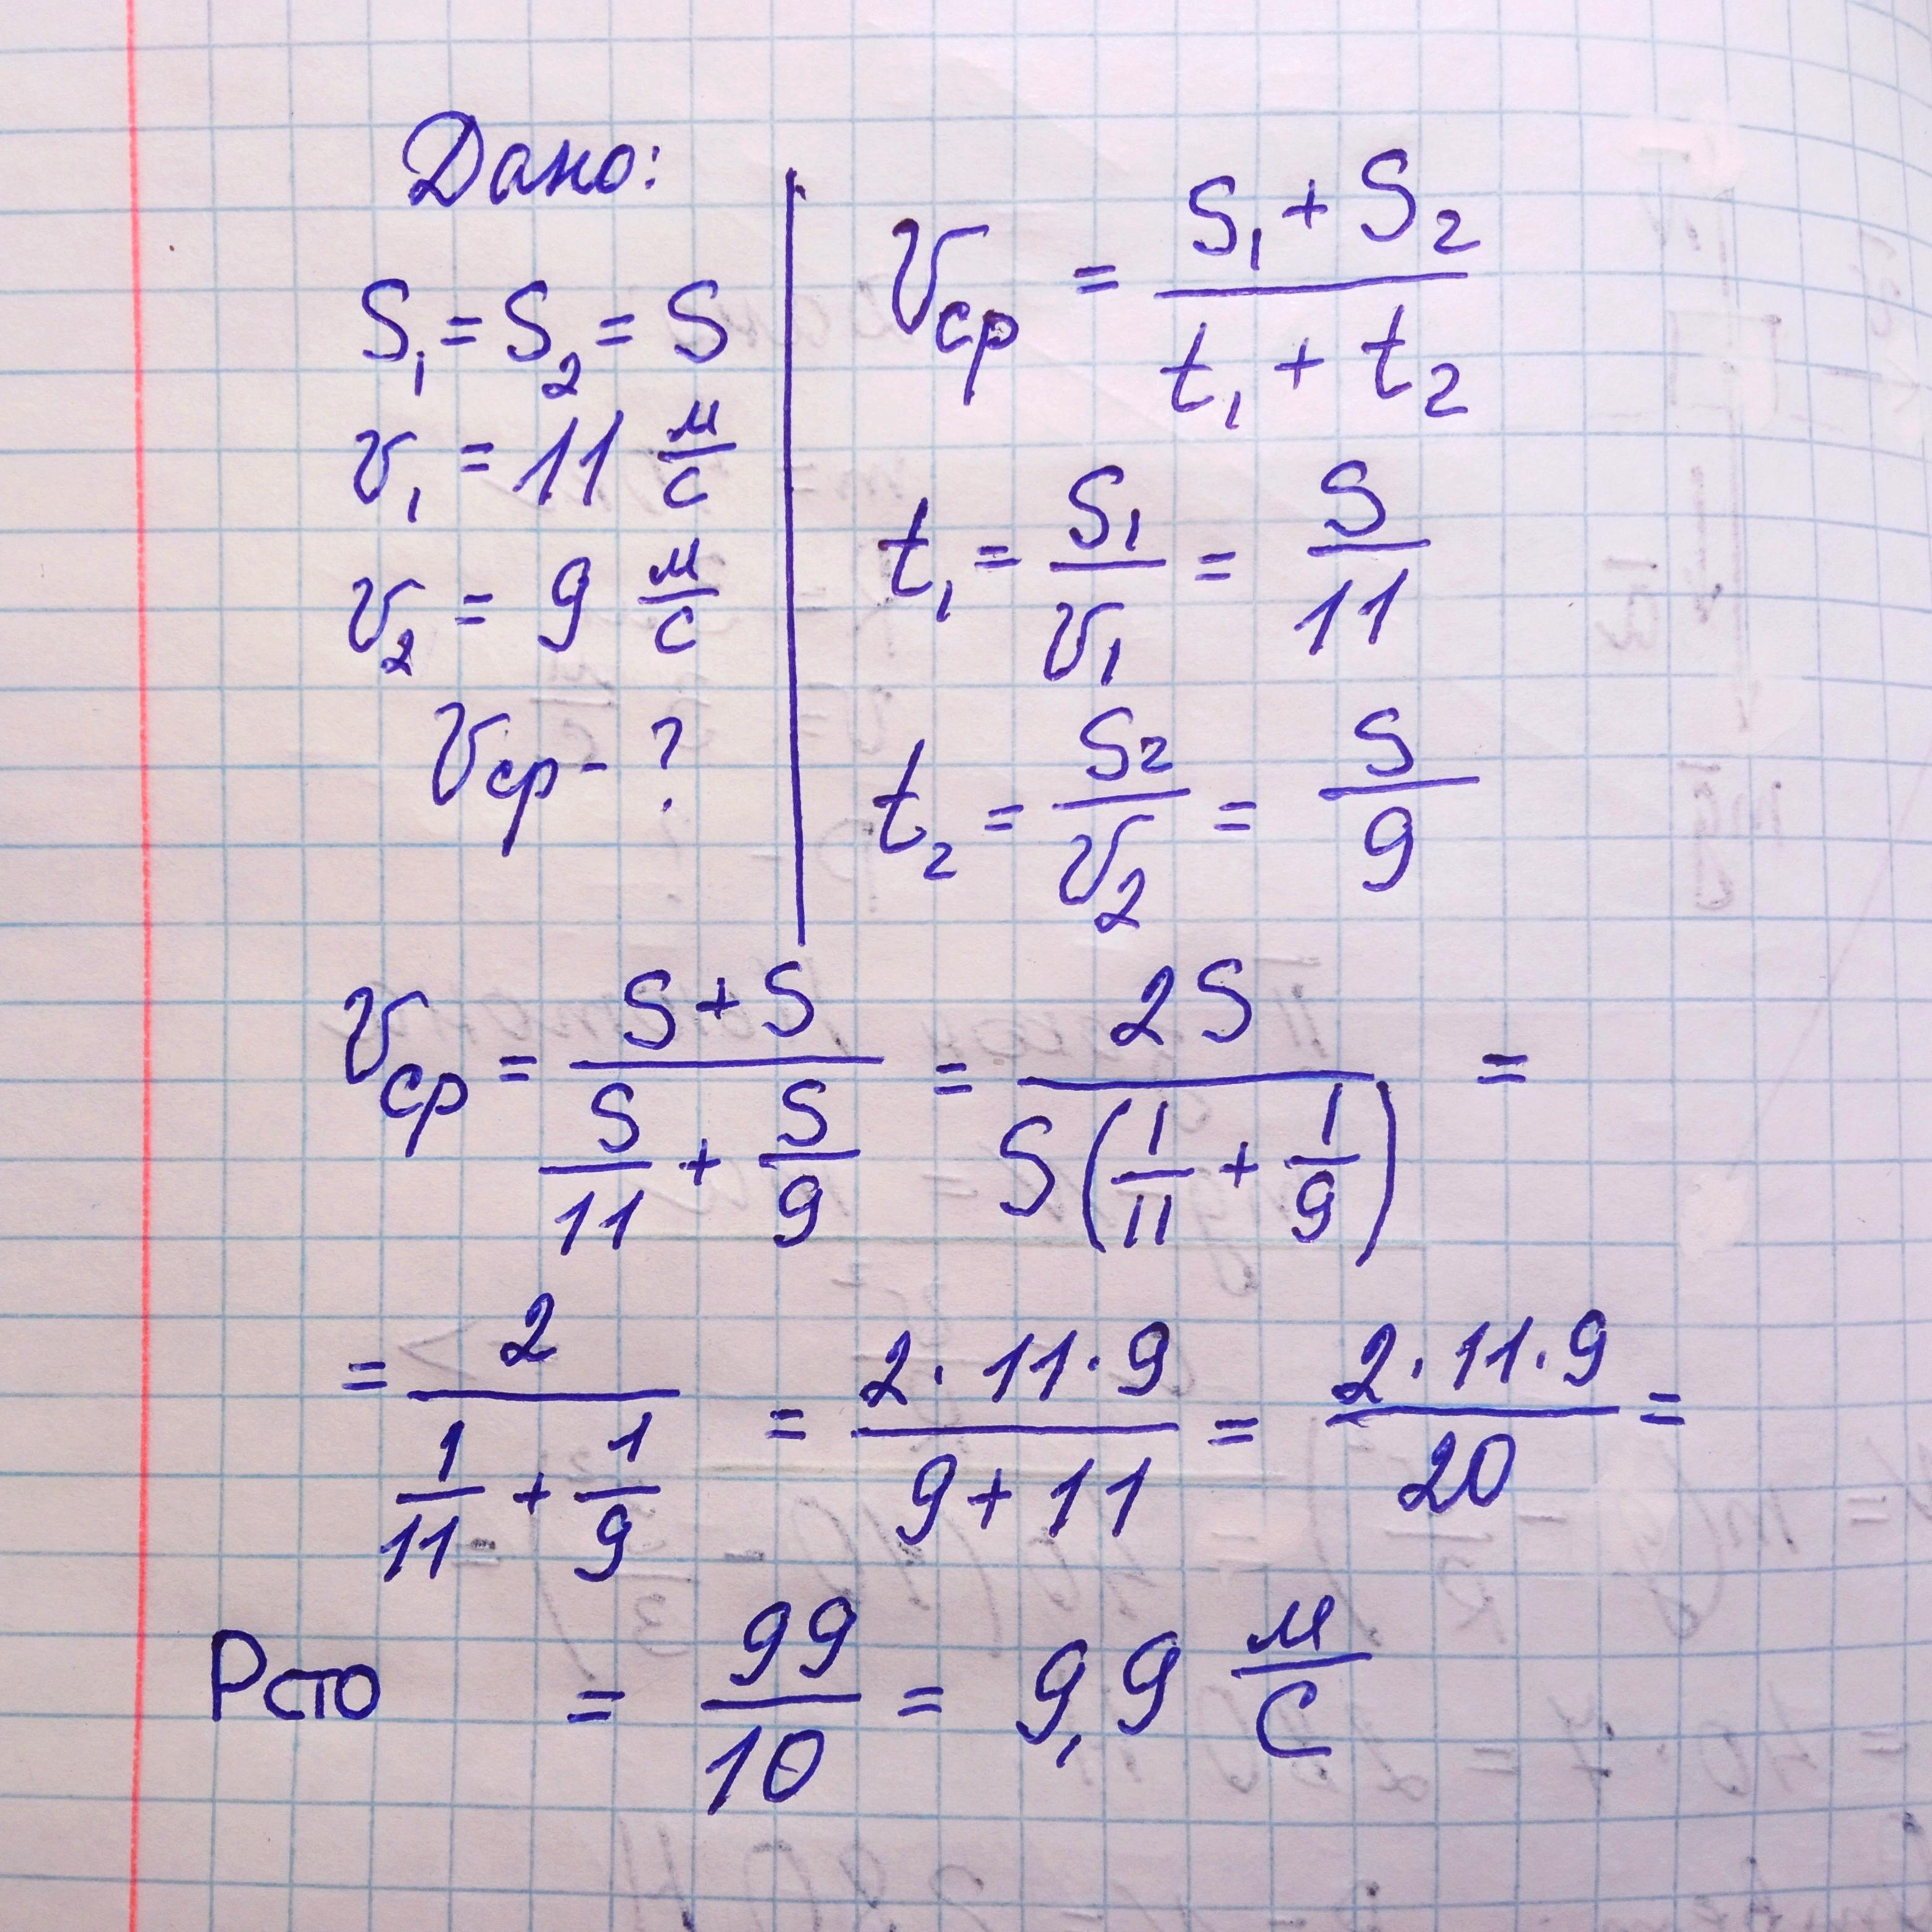 Дано:
S₁ = S₂ = S
v₁ = 11 м/с
v₂ = 9 м/с
vср - ?
vср = (S₁ + S₂)/(t₁ + t₂)
t₁ = S₁/v₁ = S/11
t₂ = S₂/v₂ = S/9
vср = (S + S)/(S/11 + S/9) = 2S/(S(1/11 + 1/9)) =
= 2/(1/11 + 1/9) = (2·11·9)/(9 + 11) = (2·11·9)/20 =
Рсто = 99/10 = 9,9 м/с